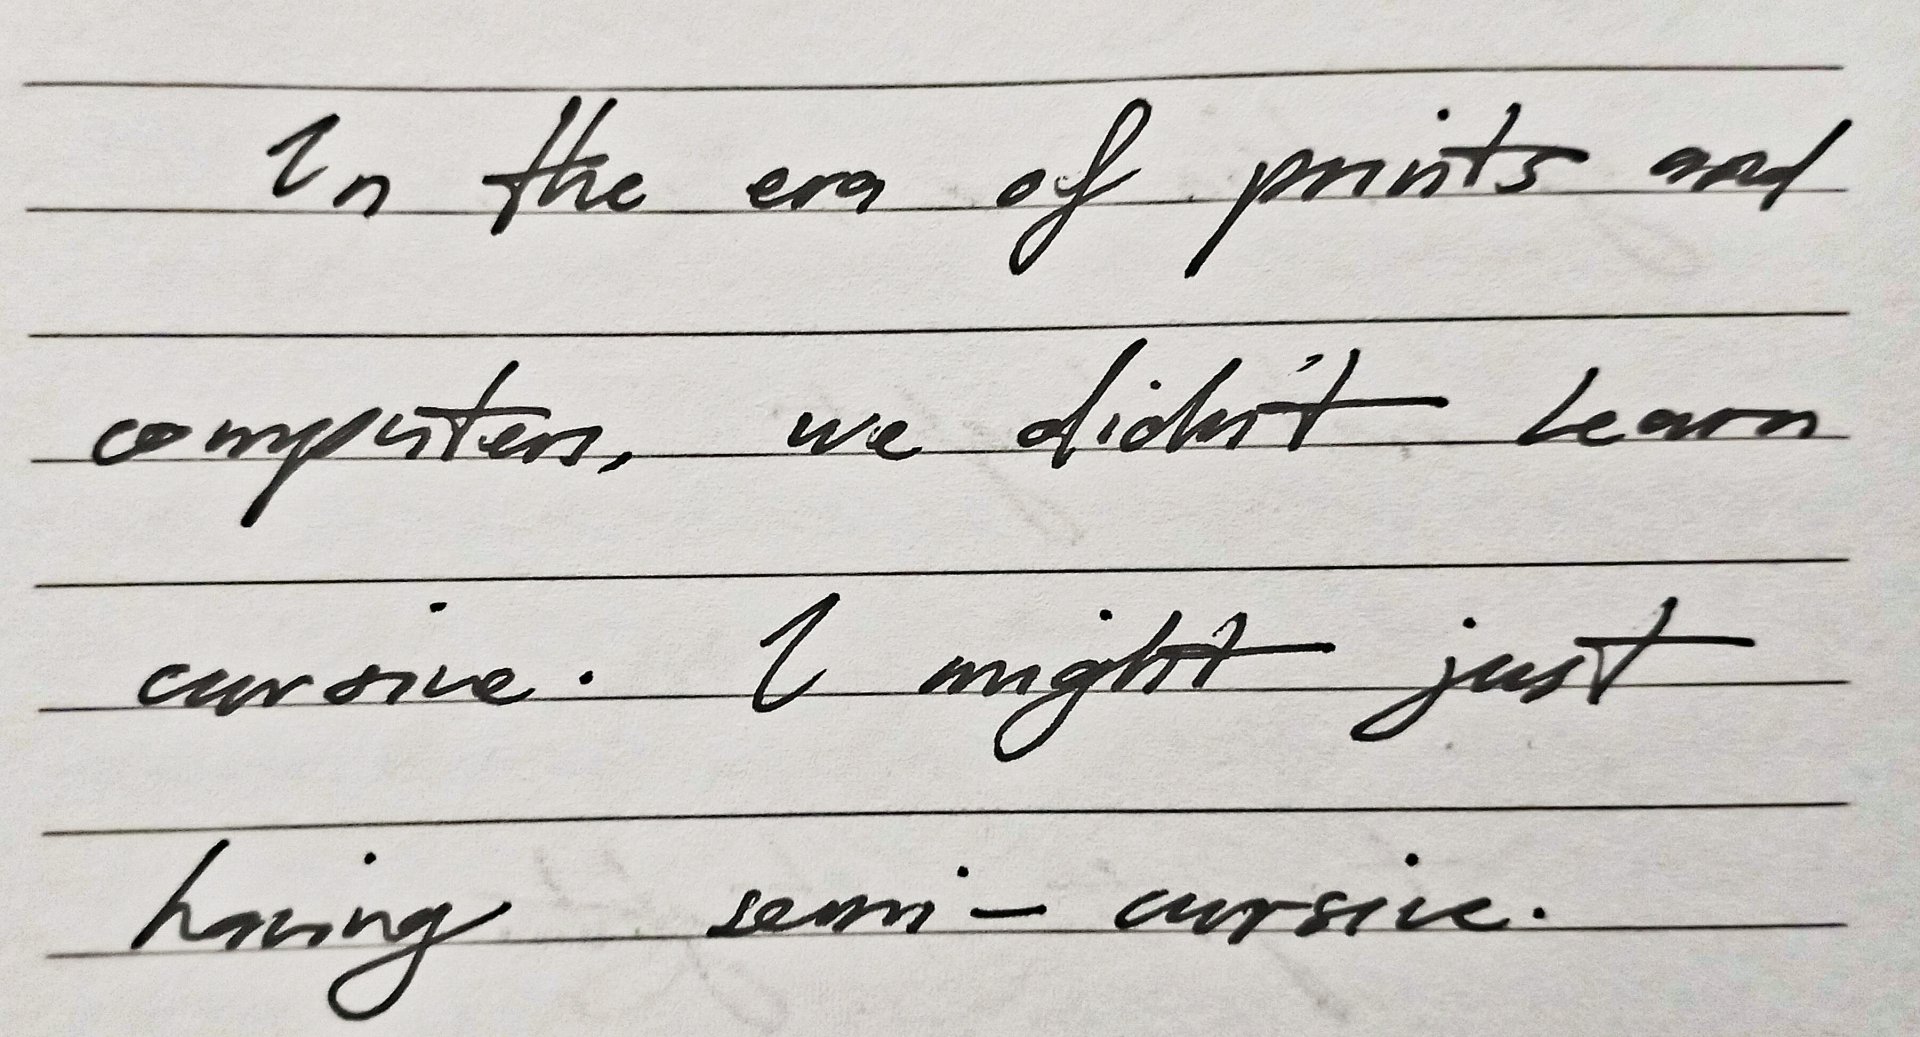 In the era of prints and
computers, we didn't learn
cursive. I might just
having semi-cursive.